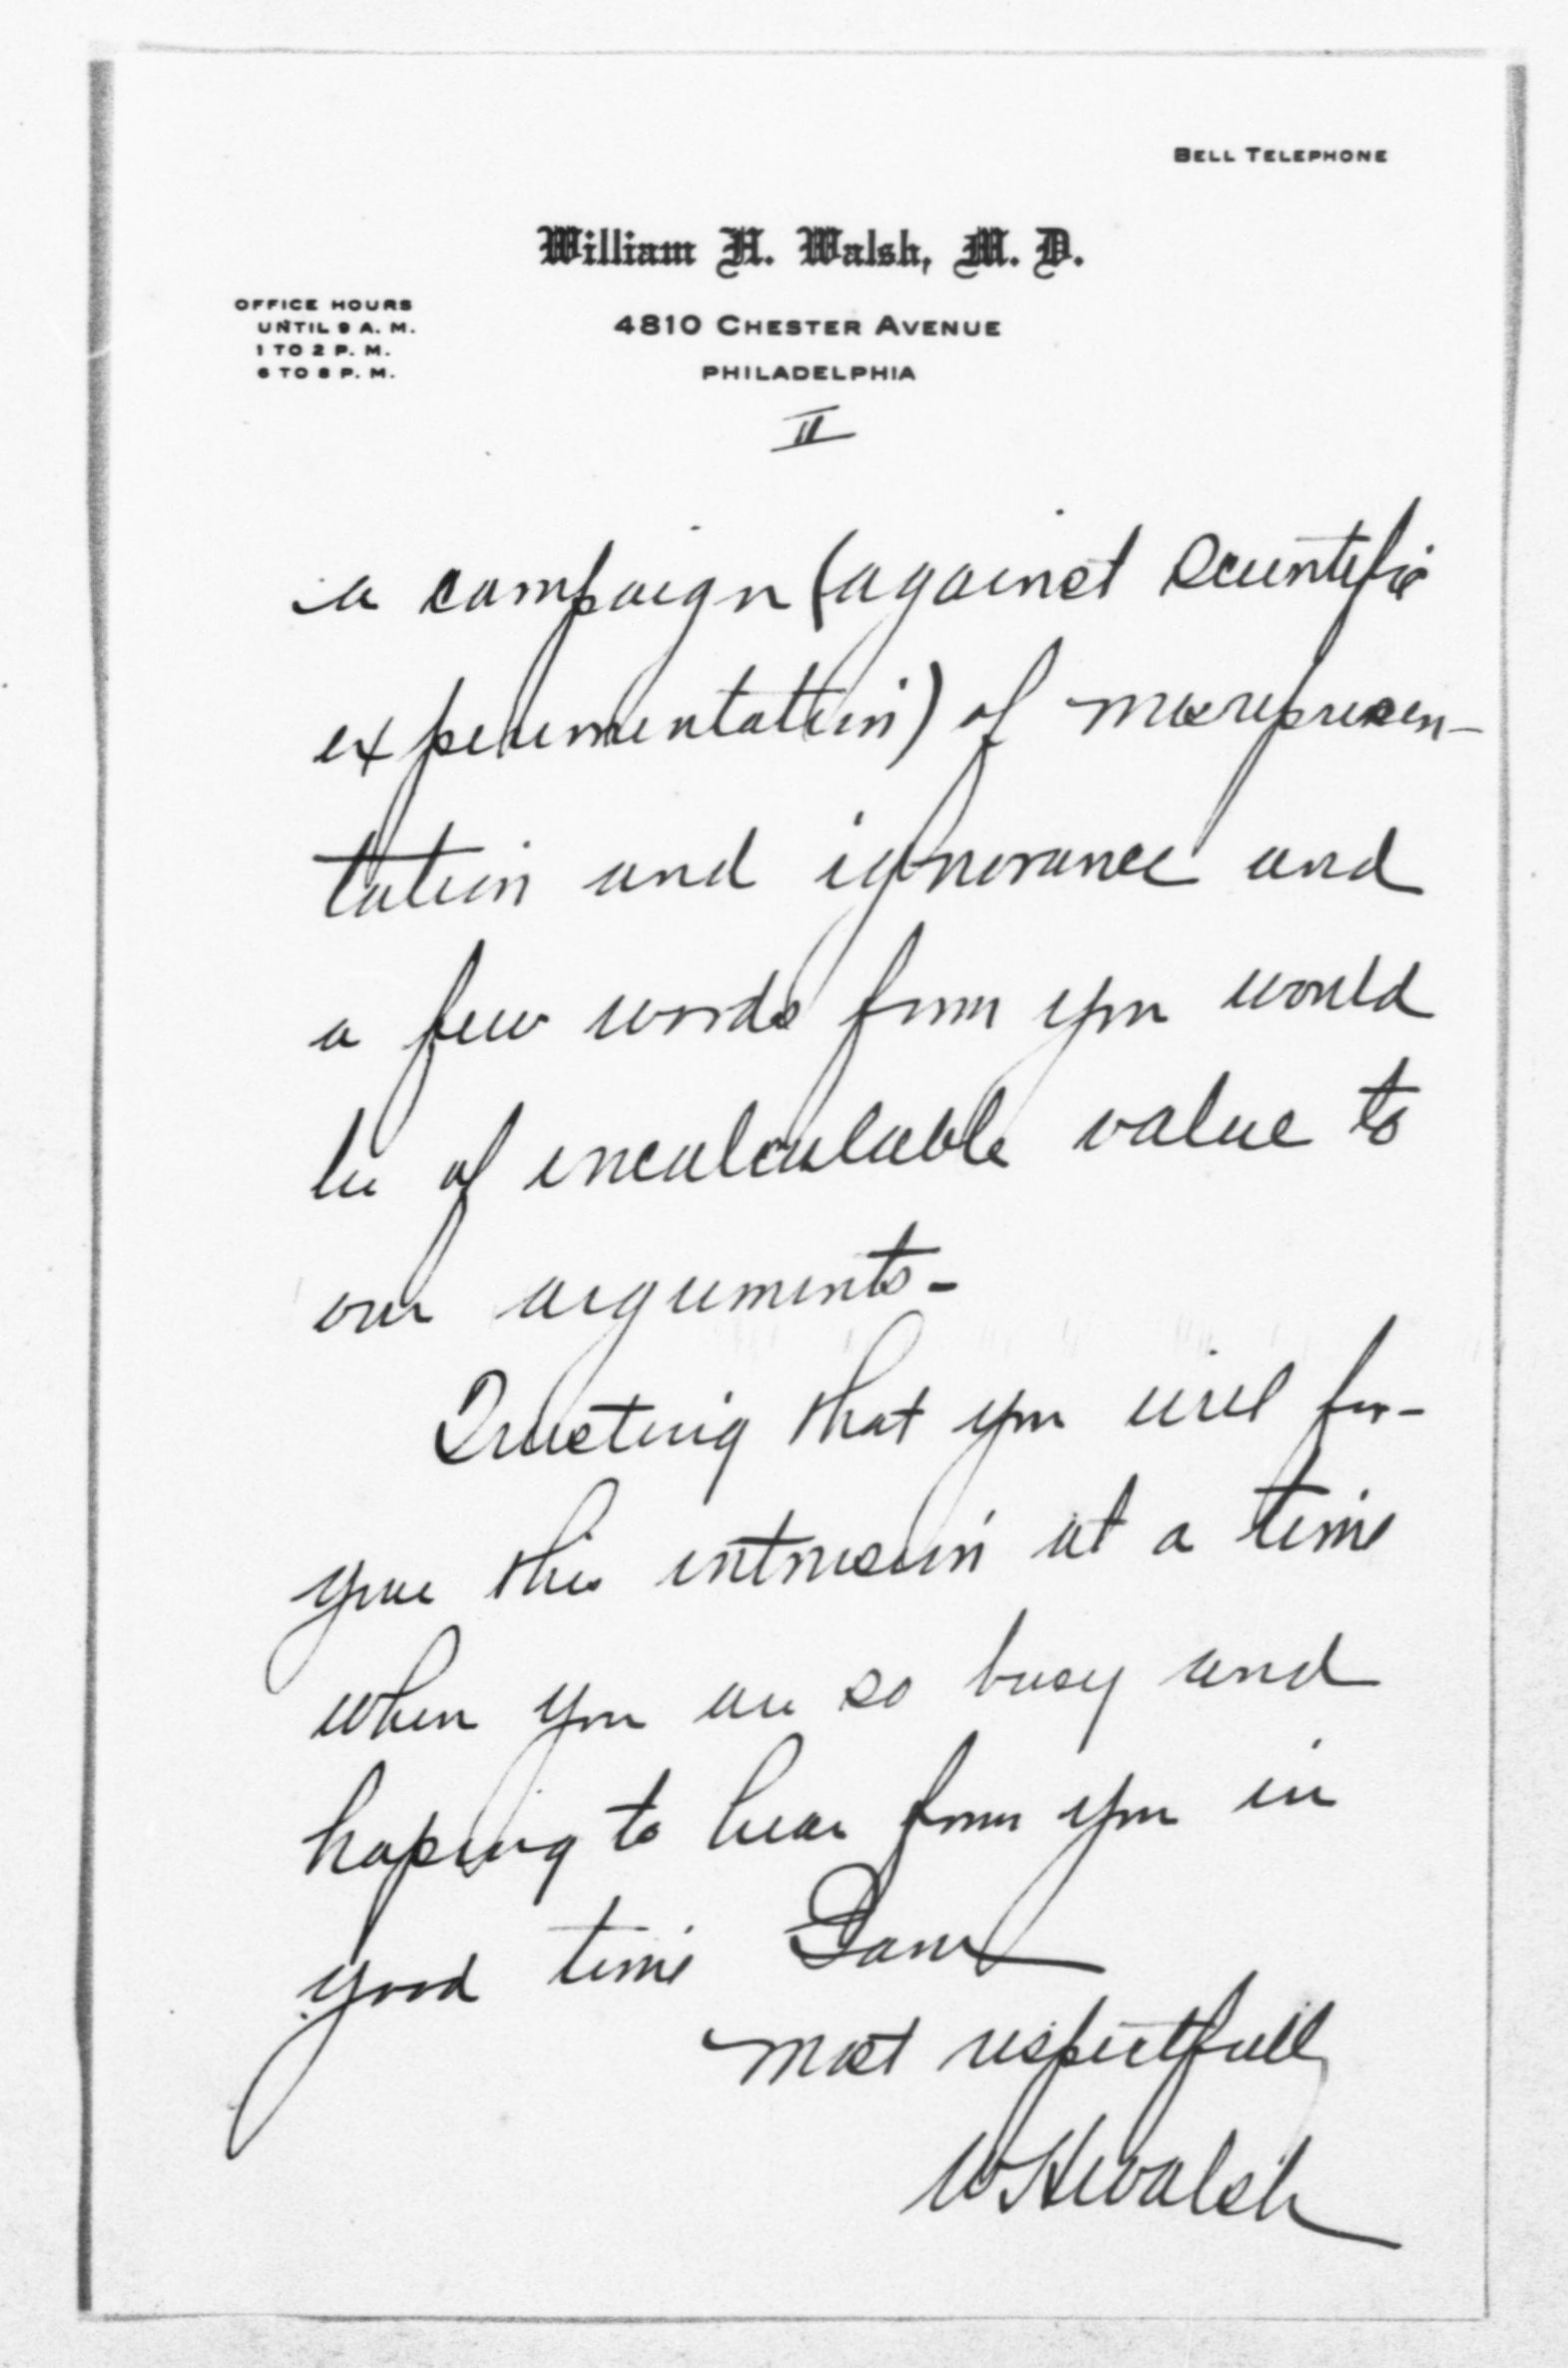 BELL TELEPHONE
William H. Walsh, M. D.
OFFICE HOURS
UNTIL 9 A. M.
1 TO 2 P. M.
6 TO 8 P. M.
4810 CHESTER AVENUE
PHILADELPHIA
II
a campaign (against scientific
experimentation) of misrepresen-
tation and ignorance and
a few words from you would
be of incalculable value to
our arguments-
Trusting that you will for-
give this intrusion at a time
when you are so busy and
hoping to hear from you in
good time I am
most respectfully
WHWalsh